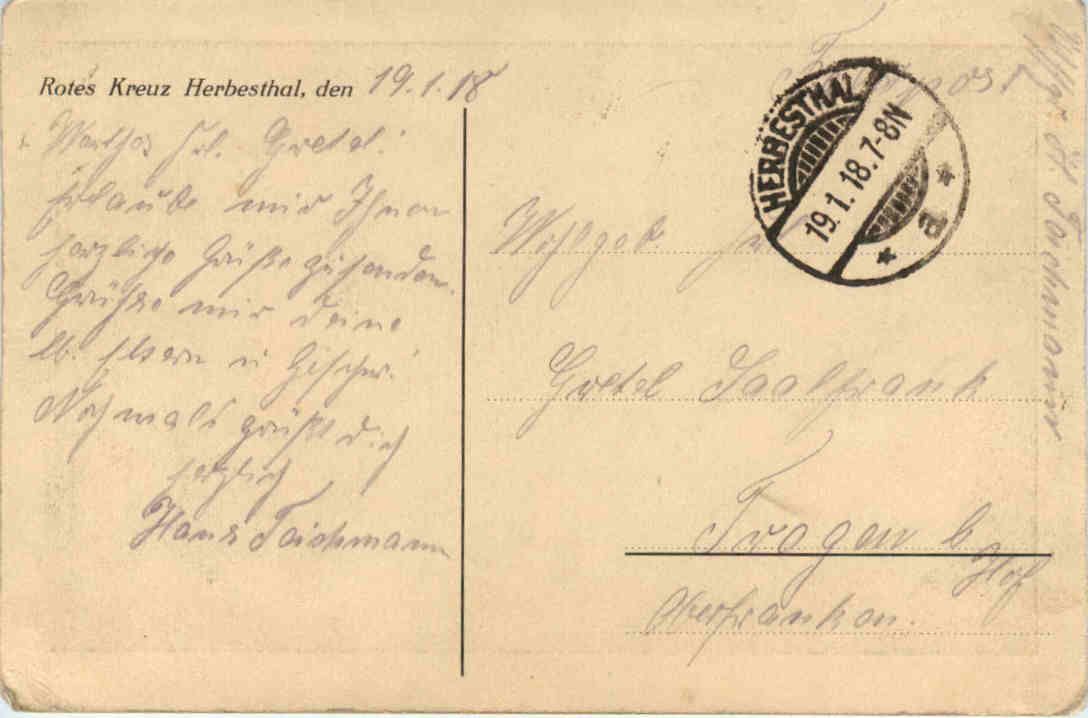 Rotes Kreuz Herbesthal, den 19.1.18
Werthes Frl. Gretel!
Erlaube mir Ihnen
herzliche Grüße zusenden.
Grüße mir deine
lb. Eltern u. Geschw.
Nochmals grüßt dich
herzlich
Hans Teichmann
Feldpost
HERBESTHAL
19.1.18.7-8N
* a *
Wohlgeb. Frl.
Gretel Saalfrank
Trogen b.
Hof
Oberfranken.
H. Teichmann